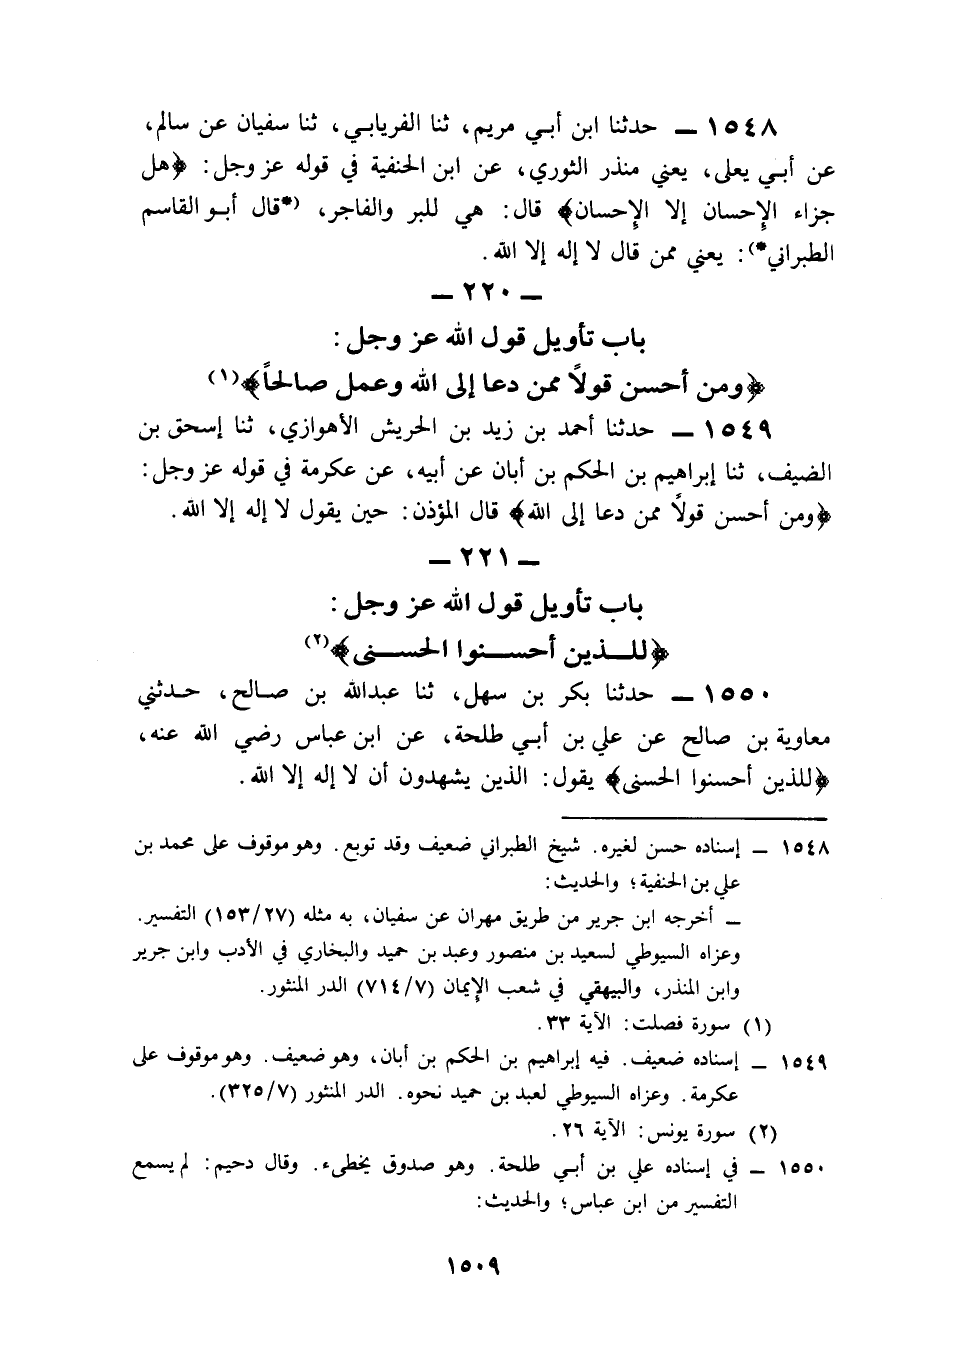 ١٥٤٨ ــ حدثنا ابن أبي مريم، ثنا الفريابي، ثنا سفيان عن سالم،
عن أبي يعلى، يعني منذر الثوري، عن ابن الحنفية في قوله عز وجل: ﴿هل
جزاء الإحسان إلا الإحسان﴾ قال: هي للبر والفاجر، (*قال أبو القاسم
الطبراني*): يعني ممن قال لا إله إلا الله.
ــ ٢٢٠ ــ
باب تأويل قول الله عز وجل:
﴿ومن أحسن قولاً ممن دعا إلى الله وعمل صالحاً﴾(١)
١٥٤٩ ــ حدثنا أحمد بن زيد بن الحريش الأهوازي، ثنا إسحق بن
الضيف، ثنا إبراهيم بن الحكم بن أبان عن أبيه، عن عكرمة في قوله عز وجل:
﴿ومن أحسن قولاً ممن دعا إلى الله﴾ قال المؤذن: حين يقول لا إله إلا الله.
ــ ٢٢١ ــ
باب تأويل قول الله عز وجل:
﴿للــذين أحســنوا الحســنى﴾(٢)
١٥٥٠ ــ حدثنا بكر بن سهل، ثنا عبدالله بن صالح، حدثني
معاوية بن صالح عن علي بن أبي طلحة، عن ابن عباس رضي الله عنه،
﴿للذين أحسنوا الحسنى﴾ يقول: الذين يشهدون أن لا إله إلا الله.
١٥٤٨ ــ إسناده حسن لغيره. شيخ الطبراني ضعيف وقد توبع. وهو موقوف على محمد بن
علي بن الحنفية؛ والحديث:
ــ أخرجه ابن جرير من طريق مهران عن سفيان، به مثله (١٥٣/٢٧) التفسير.
وعزاه السيوطي لسعيد بن منصور وعبد بن حميد والبخاري في الأدب وابن جرير
وابن المنذر، والبيهقي في شعب الإيمان (٧١٤/٧) الدر المنثور.
(١) سورة فصلت: الآية ٣٣.
١٥٤٩ ــ إسناده ضعيف. فيه إبراهيم بن الحكم بن أبان، وهو ضعيف. وهو موقوف على
عكرمة. وعزاه السيوطي لعبد بن حميد نحوه. الدر المنثور (٣٢٥/٧).
(٢) سورة يونس: الآية ٢٦.
١٥٥٠ ــ في إسناده علي بن أبي طلحة. وهو صدوق يخطىء. وقال دحيم: لم يسمع
التفسير من ابن عباس؛ والحديث:
١٥٠٩